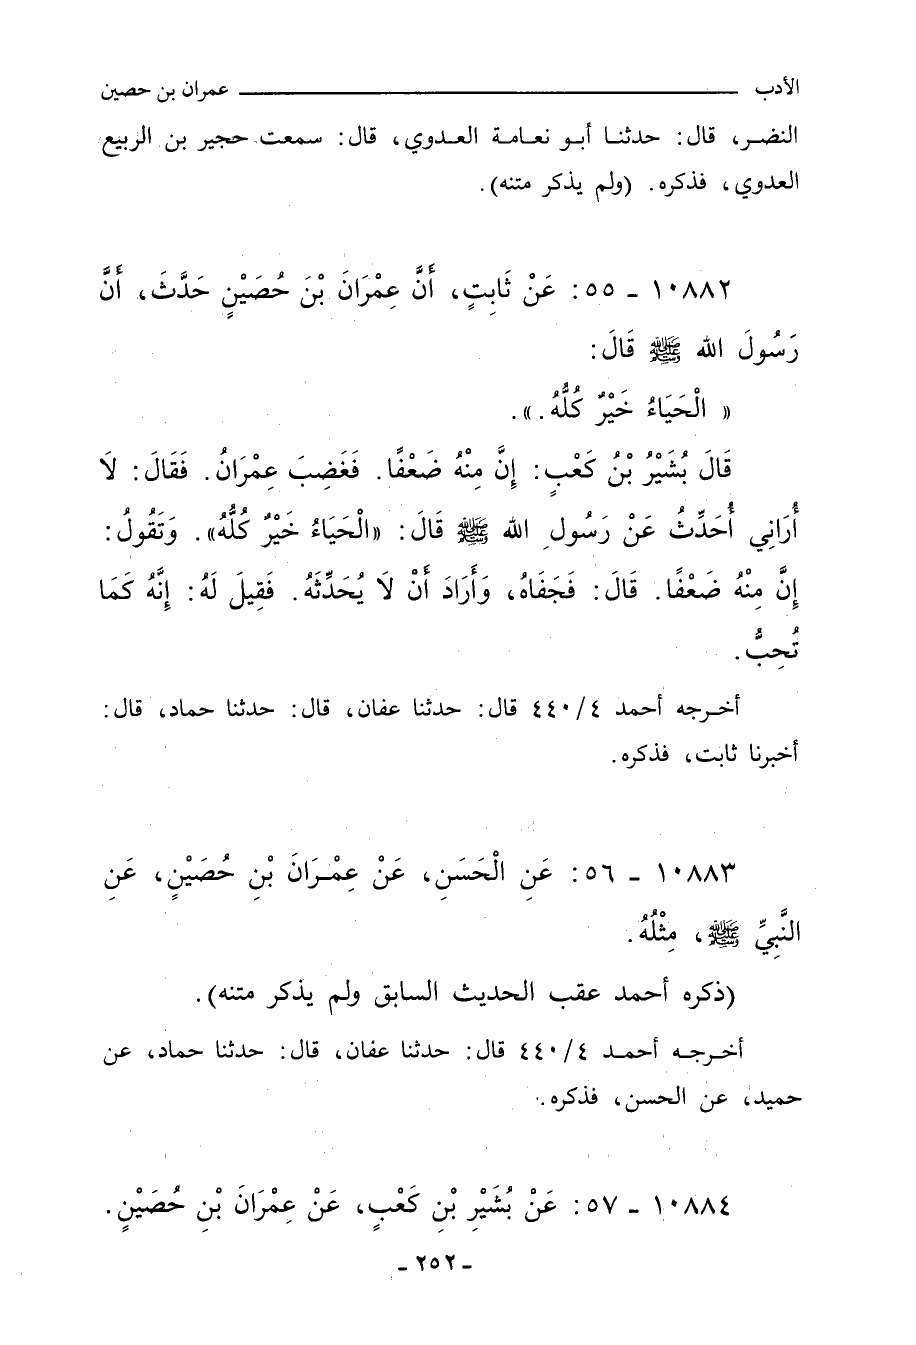 الأدب ــــــــــ عمران بن حصين
النضر، قال: حدثنا أبو نعامة العدوي، قال: سمعت حجير بن الربيع
العدوي، فذكره. (ولم يذكر متنه).
١٠٨٨٢ ـ ٥٥: عَنْ ثَابِتٍ، أَنَّ عِمْرَانَ بْنَ حُصَيْنٍ حَدَّثَ، أَنَّ
رَسُولَ الله ﷺ قَالَ:
« الْحَيَاءُ خَيْرٌ كُلُّهُ. ».
قَالَ بُشَيْرُ بْنُ كَعْبٍ: إِنَّ مِنْهُ ضَعْفًا. فَغَضِبَ عِمْرَانُ. فَقَالَ: لَا
أُرَانِي أُحَدِّثُ عَنْ رَسُولِ الله ﷺ قَالَ: «الْحَيَاءُ خَيْرٌ كُلُّهُ». وَتَقُولُ:
إِنَّ مِنْهُ ضَعْفًا. قَالَ: فَجَفَاهُ، وَأَرَادَ أَنْ لَا يُحَدِّثَهُ. فَقِيلَ لَهُ: إِنَّهُ كَمَا
تُحِبُّ.
أخرجه أحمد ٤/٤٤٠ قال: حدثنا عفان، قال: حدثنا حماد، قال:
أخبرنا ثابت، فذكره.
١٠٨٨٣ ـ ٥٦: عَنِ الْحَسَنِ، عَنْ عِمْرَانَ بْنِ حُصَيْنٍ، عَنِ
النَّبِيِّ ﷺ، مِثْلُهُ.
(ذكره أحمد عقب الحديث السابق ولم يذكر متنه).
أخرجه أحمد ٤/٤٤٠ قال: حدثنا عفان، قال: حدثنا حماد، عن
حميد، عن الحسن، فذكره.
١٠٨٨٤ ـ ٥٧: عَنْ بُشَيْرِ بْنِ كَعْبٍ، عَنْ عِمْرَانَ بْنِ حُصَيْنٍ.
ـ ٢٥٢ ـ